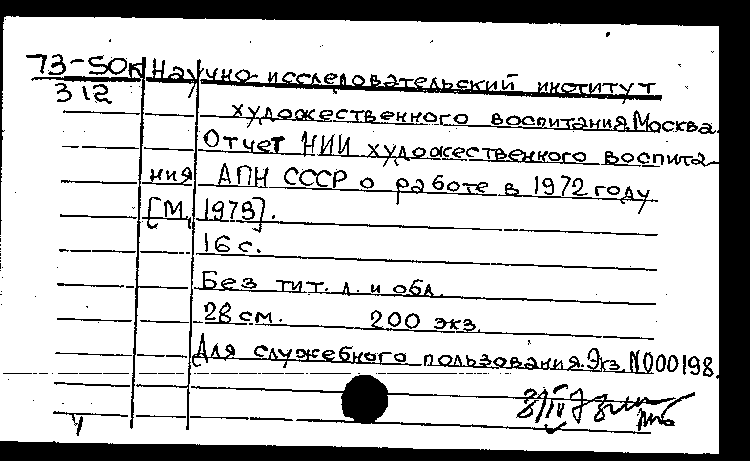 73-50к Научно-исследовательский институт
312
художественного воспитания. Москва.
Отчет НИИ художественного воспита-
ния АПН СССР о работе в 1972 году
[М, 1973].
16 с.
Без тит. л. и обл.
28 см. 200 экз.
Для служебного пользования. Экз. N000198.
У